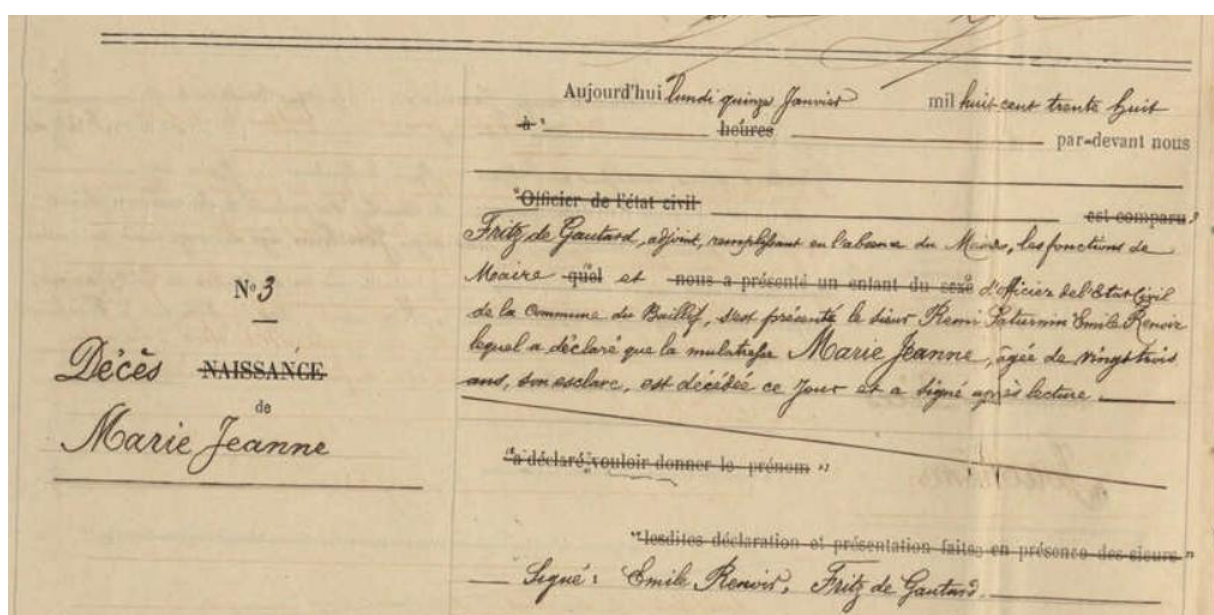 Aujourd'hui lundi quinze Janvier mil huit cent trente huit
à heures par-devant nous
"Officier de l'état civil est comparu"
Fritz de Gautard, adjoint, remplissant en l'absence du Maire, les fonctions de
Maire quel et nous a présenté un enfant du sexe d'officier de l'Etat Civil
de la Commune du Baillif, s'est présenté le sieur Remi Saturnin Emile Renoir
lequel a déclaré que la mulatresse Marie Jeanne, âgée de vingt trois
ans, son esclave, est décédée ce jour et a signé après lecture.
N° 3
Décès NAISSANCE
de
Marie Jeanne
"a déclaré vouloir donner le prénom"
"lesdites déclaration et présentation faites en présence des sieurs"
Signé : Emile Renoir, Fritz de Gautard.